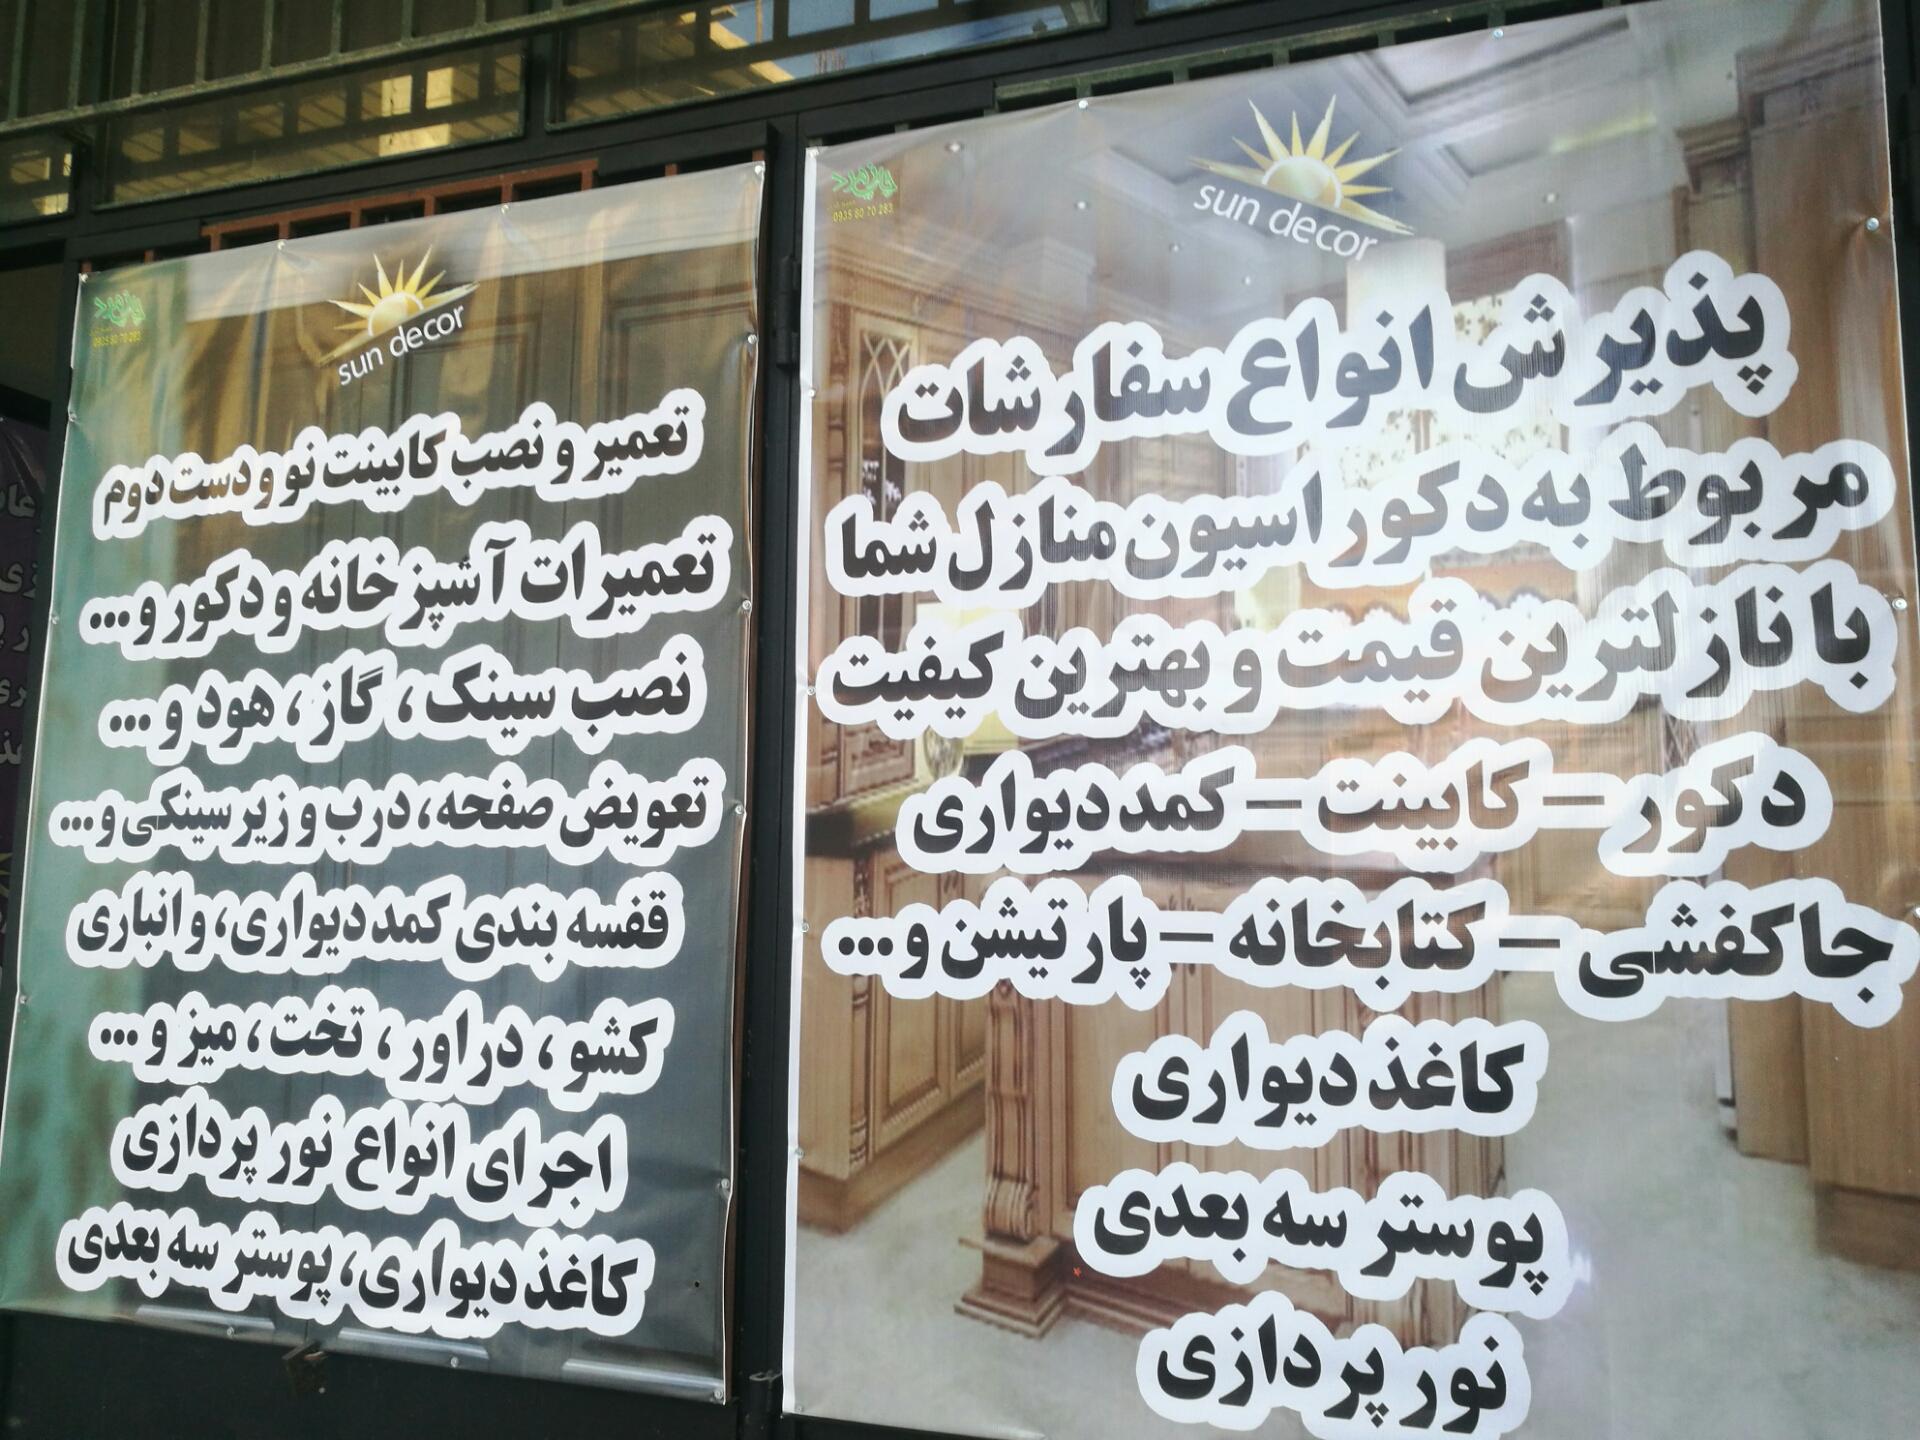 sun decor
0935 80 70 283
پذیرش انواع سفارشات
مربوط به دکوراسیون منازل شما
با نازلترین قیمت و بهترین کیفیت
دکور – کابینت – کمد دیواری
جاکفشی – کتابخانه – پارتیشن و...
کاغذ دیواری
پوستر سه بعدی
نور پردازی
sun decor
0935 80 70 283
تعمیر و نصب کابینت نو و دست دوم
تعمیرات آشپزخانه و دکور و...
نصب سینک ، گاز ، هود و ...
تعویض صفحه، درب و زیر سینکی و...
قفسه بندی کمد دیواری، و انباری
کشو ، دراور ، تخت ، میز و ...
اجرای انواع نور پردازی
کاغذ دیواری، پوستر سه بعدی